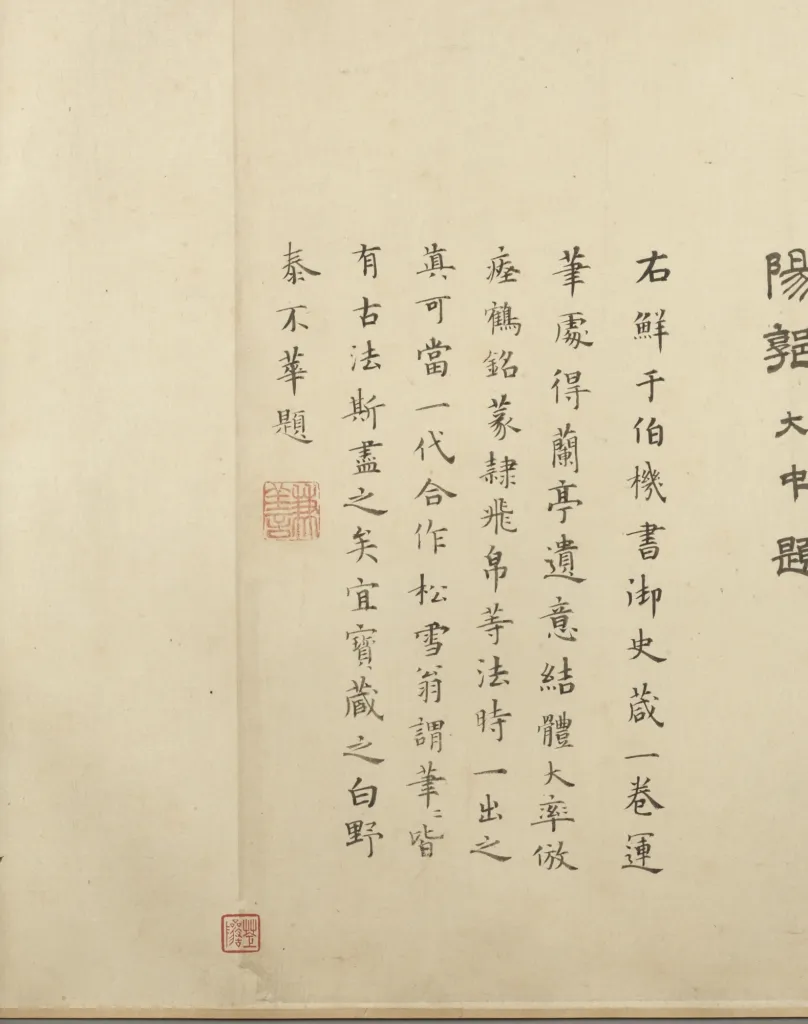 陽郭大中題
右鮮于伯機書御史葴一卷運
筆處得蘭亭遺意結體大率倣
瘞鶴銘篆隸飛帛等法時一出之
真可當一代合作松雪翁謂筆〻皆
有古法斯盡之矣宜寶蔵之白野
泰不華題
兼善